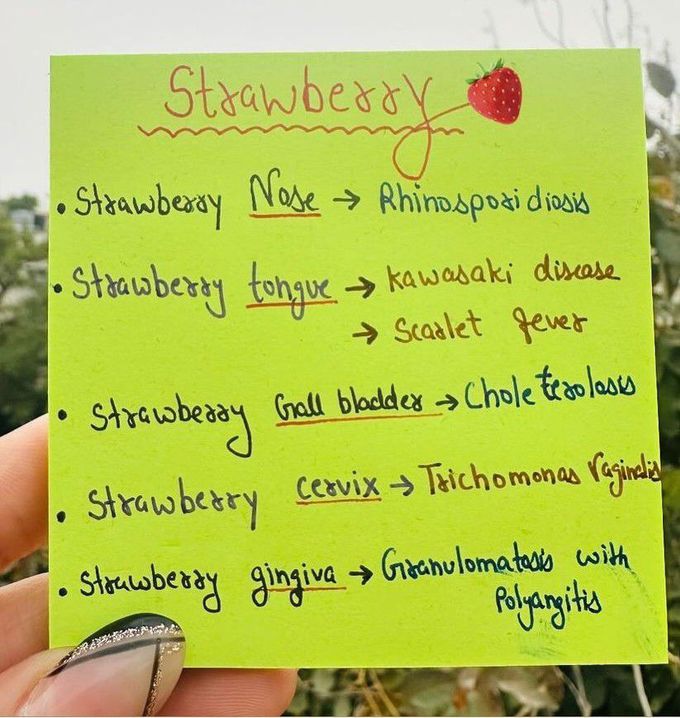 Strawberry
• Strawberry Nose → Rhinosporidiosis
• Strawberry tongue → Kawasaki disease
→ Scarlet fever
• Strawberry Gall bladder → Cholesterolosis
• Strawberry cervix → Trichomonas Vaginalis
• Strawberry gingiva → Granulomatosis with
Polyangitis